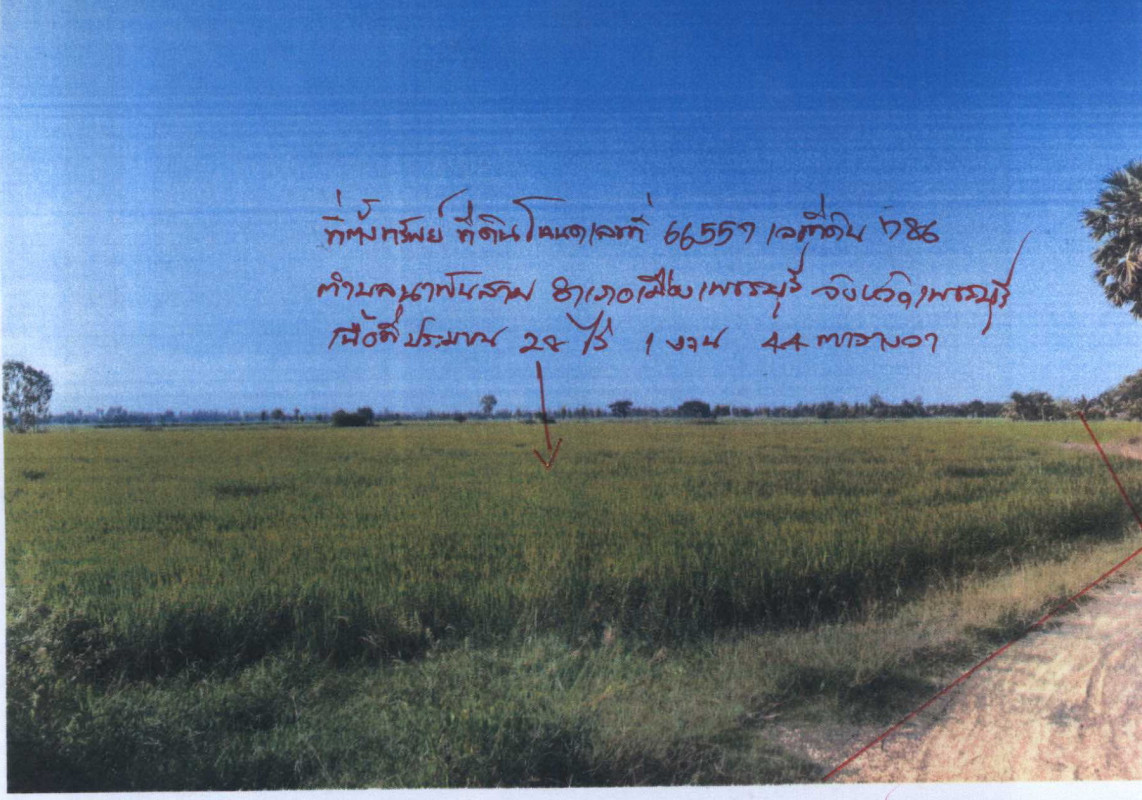 ที่ตั้งทรัพย์ ที่ดินโฉนดเลขที่ 66557 เลขที่ดิน 786
ตำบลนาพันสาม อำเภอเมืองเพชรบุรี จังหวัดเพชรบุรี
เนื้อที่ประมาณ 28 ไร่ 1 งาน 44 ตารางวา